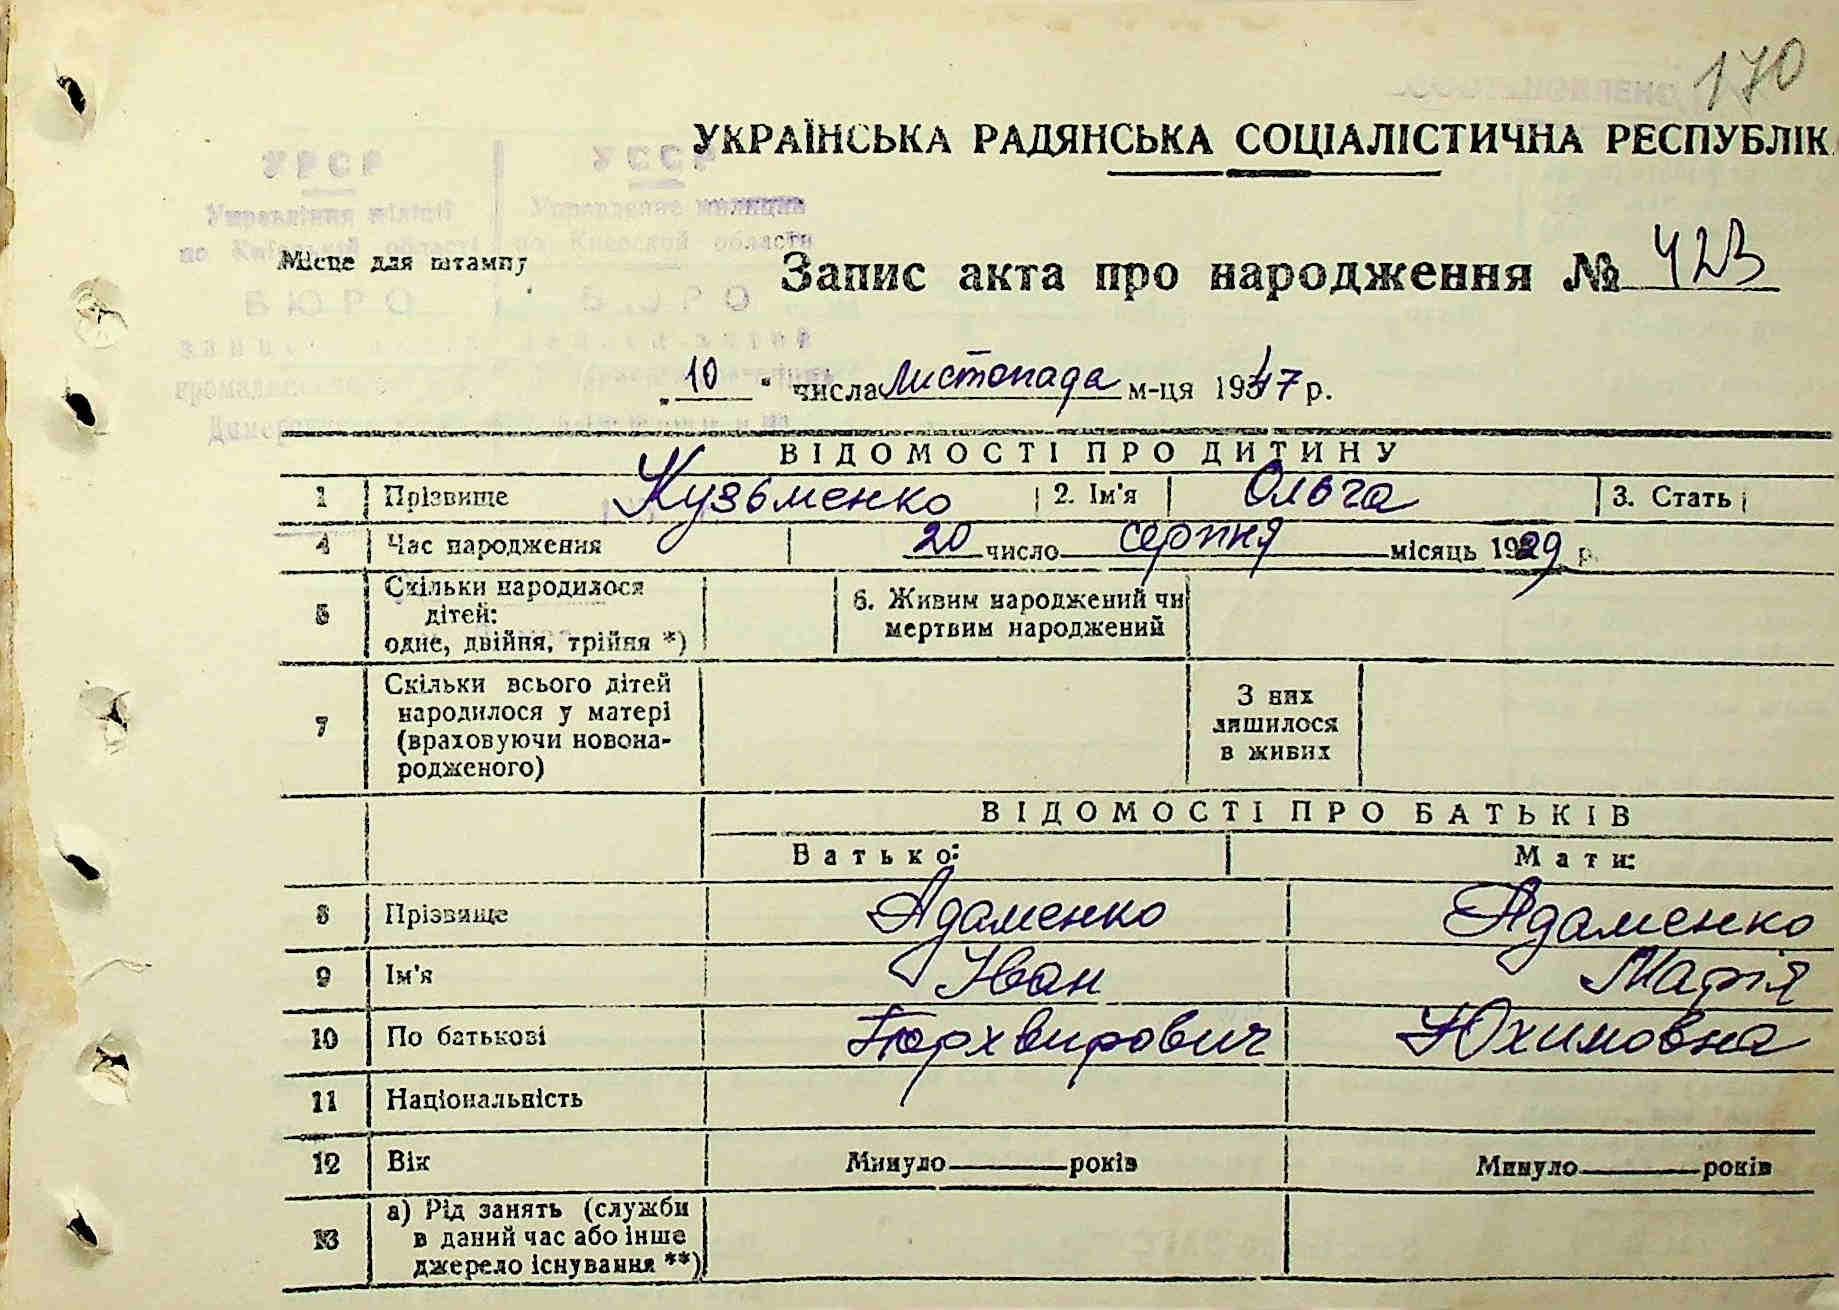 170
УКРАЇНСЬКА РАДЯНСЬКА СОЦІАЛІСТИЧНА РЕСПУБЛІК
УРСР УССР
Управління міліції Управление милиции
по Київській області по Киевской области
Місце для штампу
Запис акта про народження № 423
БЮРО БЮРО
10 числа Листопада м-ця 1947 р.
ВІДОМОСТІ ПРО ДИТИНУ
1 Прізвище Кузьменко 2. Ім'я Ольга 3. Стать
4 Час народження 20 число серпня місяць 1929 р.
5 Скільки народилося
дітей:
одне, двійня, трійня *)
6. Живим народжений чи
мертвим народжений
7 Скільки всього дітей
народилося у матері
(враховуючи новона-
родженого)
З них
лишилося
в живих
ВІДОМОСТІ ПРО БАТЬКІВ
Батько: Мати:
8 Прізвище Адаменко Адаменко
9 Ім'я Іван Марія
10 По батькові Порхвирович Юхимовна
11 Національність
12 Вік Минуло років Минуло років
13 а) Рід занять (служби
в даний час або інше
джерело існування **)